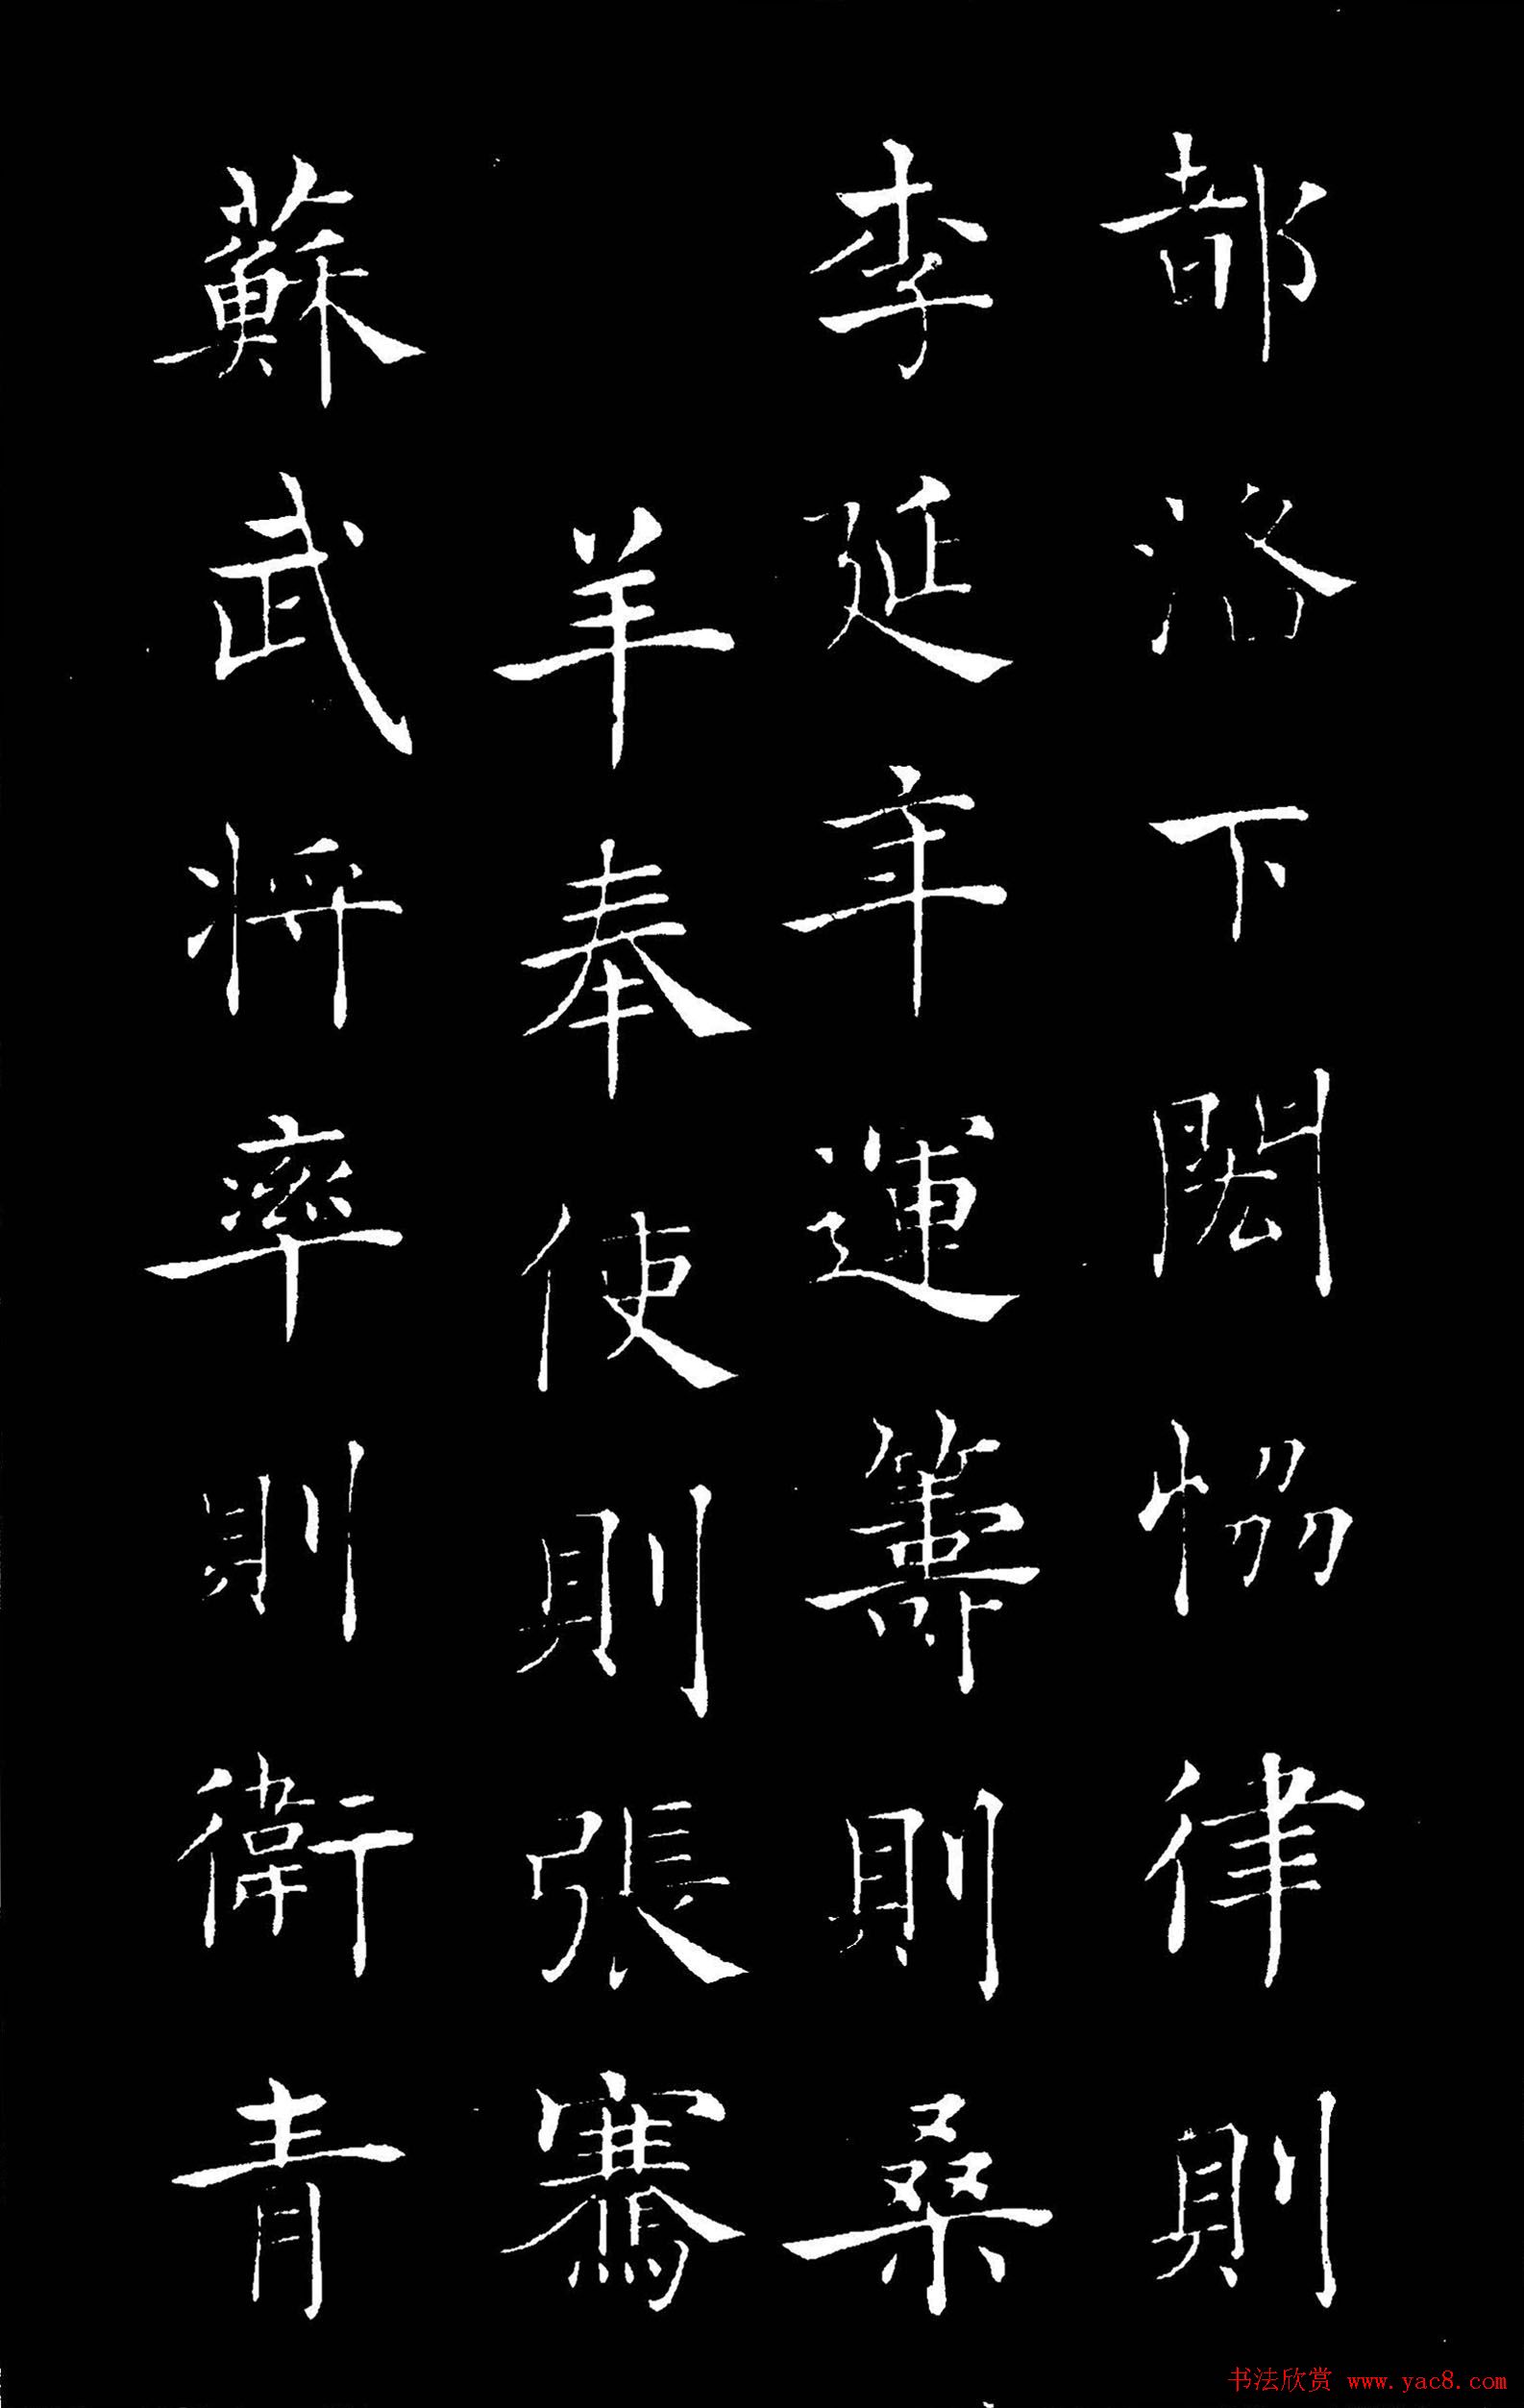 都洛下閎協律則
李延年運籌則桑
羊奉使則張騫
蘇武將率則衛青
书法欣赏 www.yac8.com